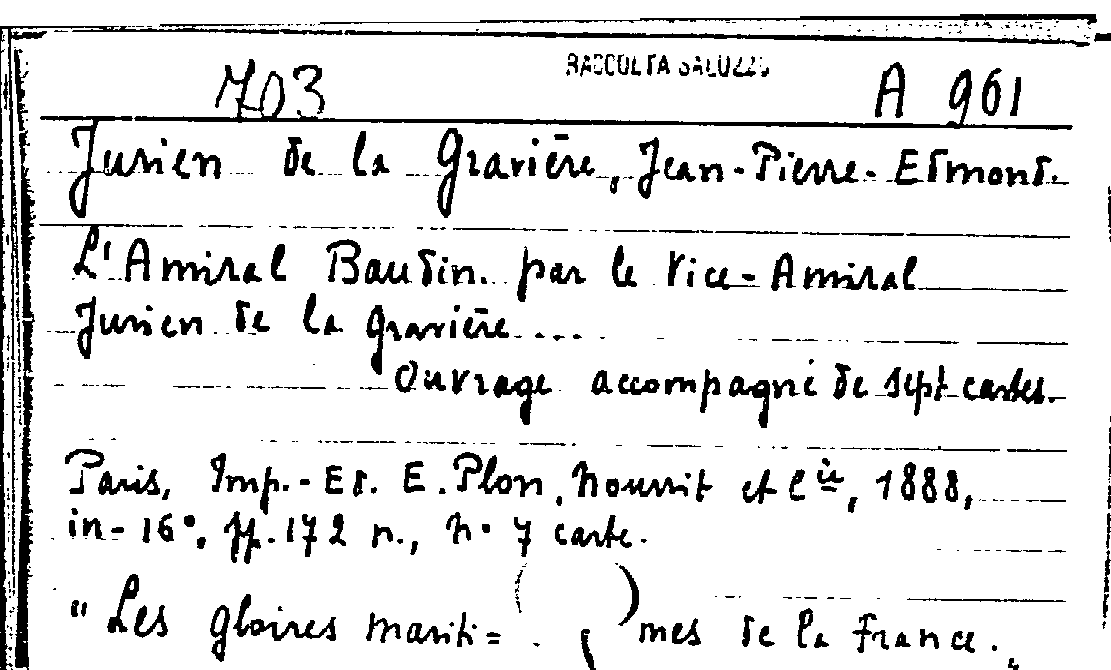 RACCOLTA SALUZZO
703 A 961
Jurien de la Gravière, Jean-Pierre-Edmond.
L'Amiral Baudin. par le Vice-Amiral
Jurien de la Gravière....
Ouvrage accompagné de sept cartes.
Paris, Imp.-Ed. E. Plon, Nourrit et Cie, 1888,
in-16°, pp. 172 n., n° 7 carte.
"Les gloires mariti=mes de la France.